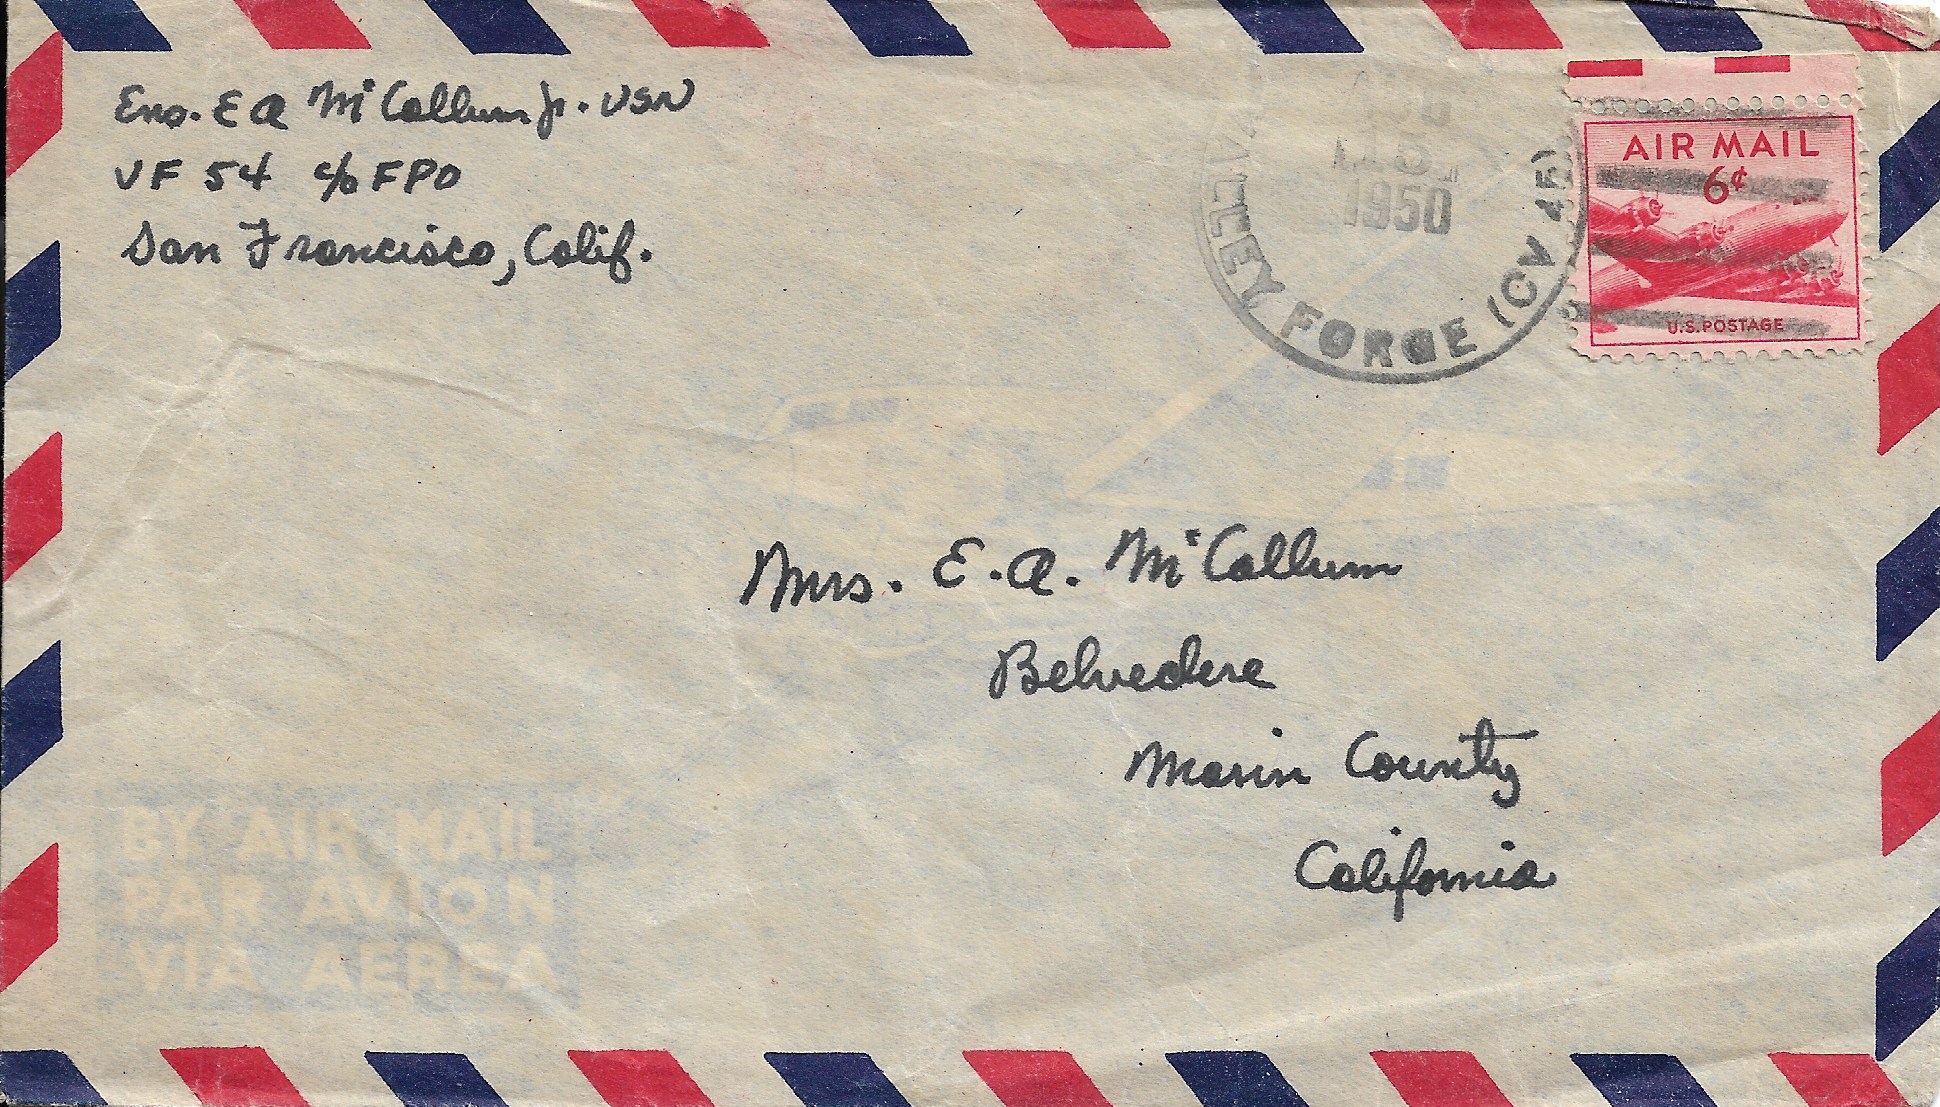 Ens. E A McCallum Jr. USN
VF 54 c/o FPO
San Francisco, Calif.
AUG
15
1950
VALLEY FORGE (CV 45)
AIR MAIL
6¢
U.S. POSTAGE
Mrs. E. A. McCallum
Belvedere
Marin County
California
BY AIR MAIL
PAR AVION
VIA AEREA